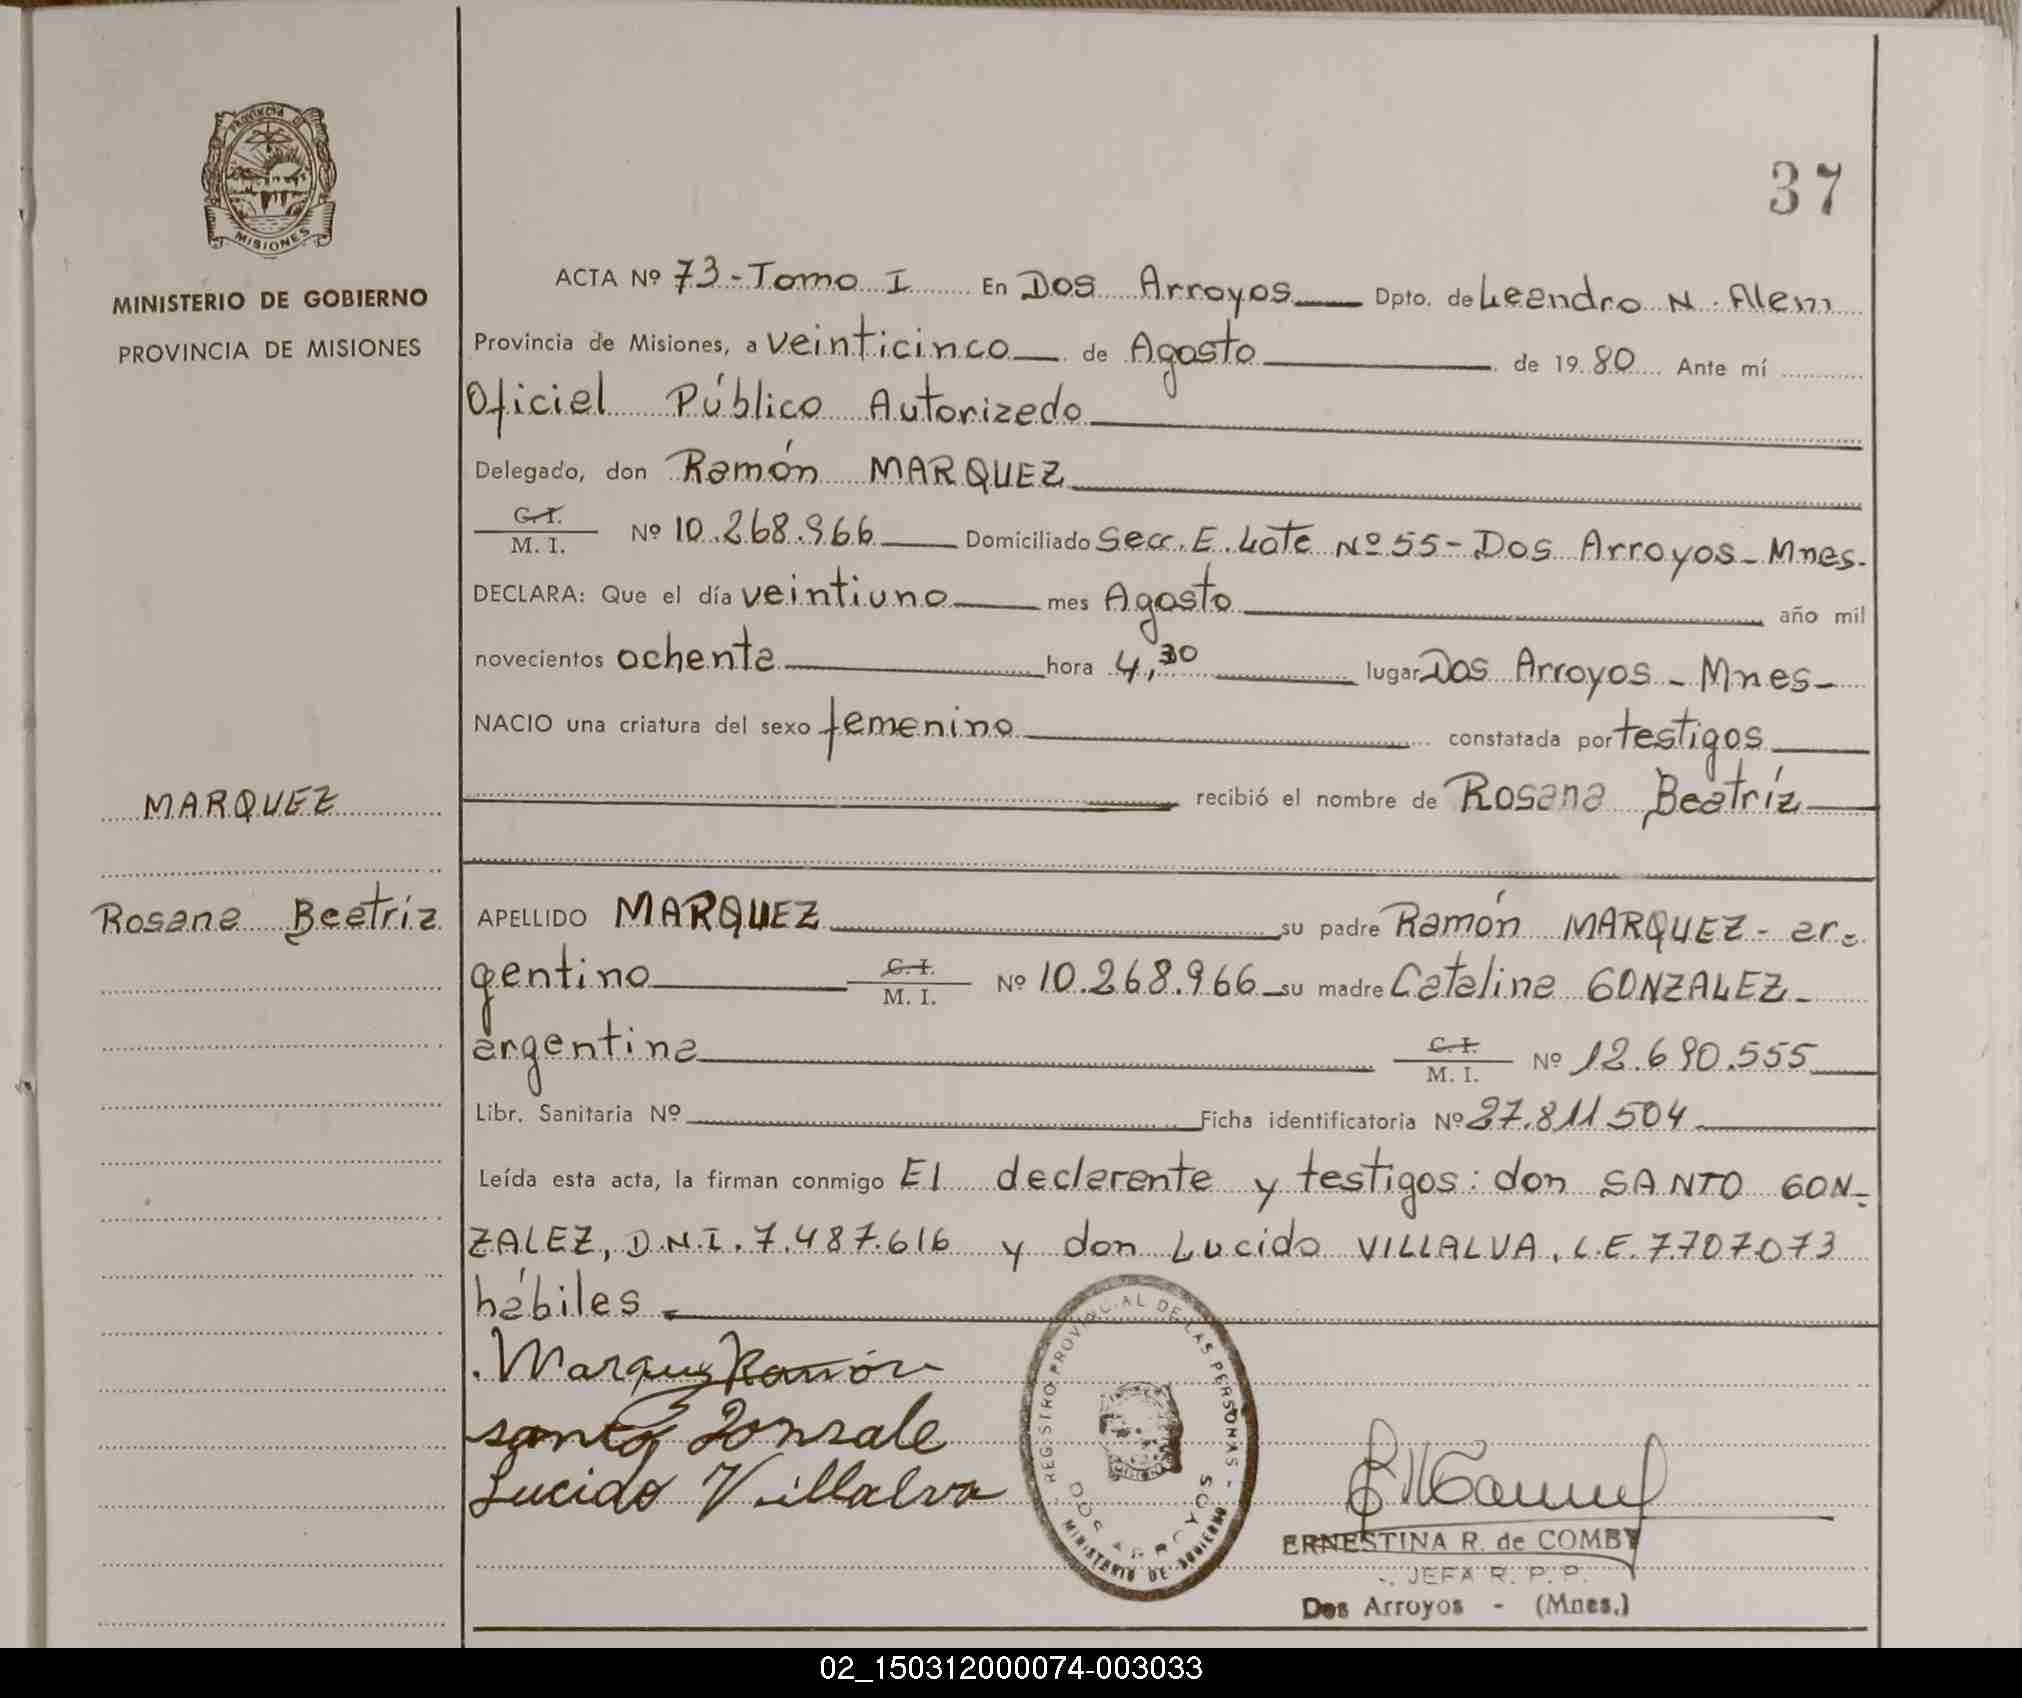 PROVINCIA DE
MISIONES
MINISTERIO DE GOBIERNO
PROVINCIA DE MISIONES
37
ACTA Nº 73-Tomo I En Dos Arroyos Dpto. de Leandro N. Alem
Provincia de Misiones, a veinticinco de Agosto de 1980 Ante mí
Oficial Público Autorizado
Delegado, don Ramón MARQUEZ
C.I.
M. I. Nº 10.268.966 Domiciliado Secc. E. Lote Nº 55 - Dos Arroyos - Mnes.
DECLARA: Que el día veintiuno mes Agosto año mil
novecientos ochenta hora 4,30 lugar Dos Arroyos - Mnes -
NACIO una criatura del sexo femenino constatada por testigos
MARQUEZ
recibió el nombre de Rosana Beatríz
Rosana Beatríz
APELLIDO MARQUEZ su padre Ramón MARQUEZ - ar=
gentino C.I. M. I. Nº 10.268.966 su madre Catalina GONZALEZ -
argentina C.I. M. I. Nº 12.690.555
Libr. Sanitaria Nº Ficha identificatoria Nº 27.811.504
Leída esta acta, la firman conmigo El declarante y testigos: don SANTO GON=
ZALEZ, D.N.I. 7.487.616 y don Lucido VILLALVA, L.E. 7707073
hábiles
Marquez Ramón
santo Gonsale
Lucido Villalva
REGISTRO PROVINCIAL DE LAS PERSONAS -
DOS ARROYOS
MINISTERIO DE GOBIERNO
ERNESTINA R. de COMBY
JEFA R. P. P.
Dos Arroyos - (Mnes.)
02_150312000074-003033